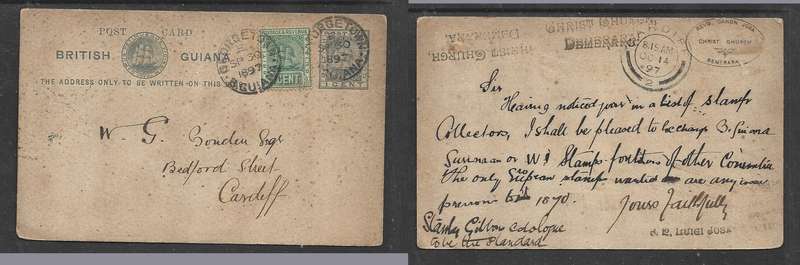 POST CARD
BRITISH GUIANA
THE ADDRESS ONLY TO BE WRITTEN ON THIS
GEORGETOWN
1897
POSTAGE & REVENUE
CENT
GEORGETOWN
1897
1 CENT
W G. Bowden Esqr
Bedford Street
Cardiff
CHRIST CHURCH,
DEMERARA.
CHRIST CHURCH,
DEMERARA
CARDIFF
8.15 AM
OC 14
97
2
CANON JOSA
CHRIST CHURCH
DEMERARA
Sir
Hearing noticed your in a list of Stamp
Collectors, I shall be pleased to exchange B. Guiana
Surinam or W I Stamps for those of other Countries
The only European stamps wanted are any
previous to 1870. Yours Faithfully
Stanley Gibbons catalogue
to be the Standard
LUIGI JOSA